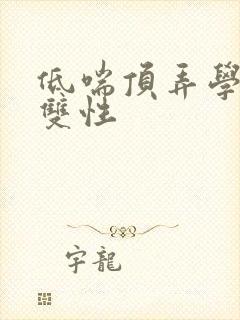 低喘頂弄學
雙性
宇龍